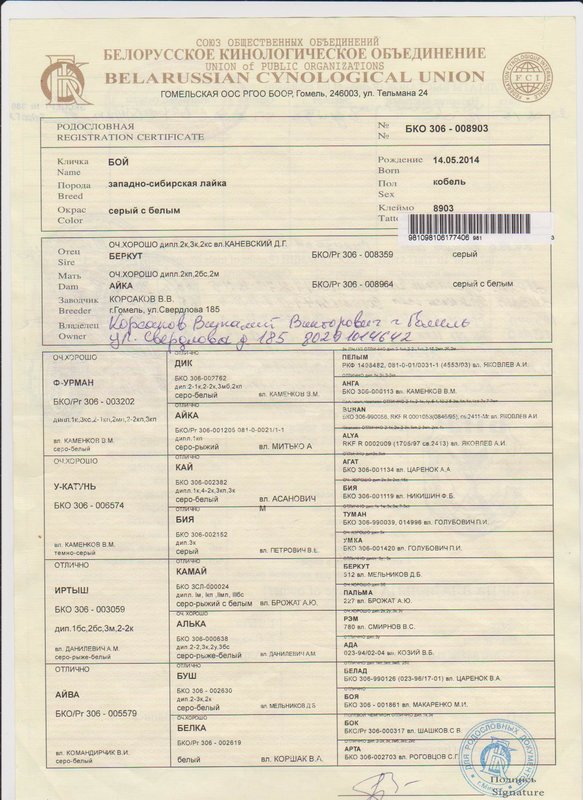 СОЮЗ ОБЩЕСТВЕННЫХ ОБЪЕДИНЕНИЙ
БЕЛОРУССКОЕ КИНОЛОГИЧЕСКОЕ ОБЪЕДИНЕНИЕ
UNION of PUBLIC ORGANIZATIONS
BELARUSSIAN CYNOLOGICAL UNION
FCI
ГОМЕЛЬСКАЯ ООС РГОО БООР, Гомель, 246003, ул. Тельмана 24
РОДОСЛОВНАЯ
REGISTRATION CERTIFICATE
№ БКО 306 - 008903
№
Кличка БОЙ
Name
Рождение 14.05.2014
Born
Порода западно-сибирская лайка
Breed
Пол кобель
Sex
Окрас серый с белым
Color
Клеймо 8903
981098106177406 981
Отец ОЧ.ХОРОШО дипл.2к,3к,2кс вл.КАНЕВСКИЙ Д.Г.
Sire БЕРКУТ БКО/Pr 306 -008359 серый
Мать ОЧ.ХОРОШО дипл.2кп,2бс,2м
Dam АЙКА БКО/Pr 306 -008964 серый с белым
Заводчик КОРСАКОВ В.В.
Breeder г.Гомель, ул.Свердлова 185
Владелец Корсаков Виталий Викторович г. Гомель
Owner ул. Свердлова д 185 80291014642
ОЧ.ХОРОШО
Ф-УРМАН
БКО/Pr 306 - 003202
вл. КАМЕНКОВ В.М.
серо-белый
ОЧ.ХОРОШО
У-КАТУНЬ
БКО 306 - 006574
вл. КАМЕНКОВ В.М.
темно-серый
ОТЛИЧНО
ИРТЫШ
БКО 306 - 003059
дип.1бс,2бс,3м,2-2к
вл. ДАНИЛЕВИЧ А.М.
серо-рыже-белый
ОТЛИЧНО
АЙВА
БКО/Pr 306 - 005579
вл. КОМАНДИРЧИК В.И.
серо-белый
ОТЛИЧНО
ДИК
БКО 306-007762
дип.2-1к,2-2к,3мб,2кп
серо-белый вл. КАМЕНКОВ В.М.
ОТЛИЧНО
АЙКА
БКО/Pr 306-001205 081-0-0021/1-1
дипл.1кл
серо-рыжий вл. МИТЬКО А
ОТЛИЧНО
КАЙ
БКО 306-002382
дипл.1к,4-2к,3кп,3к
серо-белый вл. АСАНОВИЧ М
ОТЛИЧНО
БИЯ
БКО 306-002152
дип.3к
серый вл. ПЕТРОВИЧ В.Е.
ОТЛИЧНО
КАМАЙ
БКО ЗСЛ-00024
серо-рыжий с белым вл. БРОЖАТ А.Ю.
ОЧ. ХОРОШО
АЛЬКА
БКО 306-000638
дип.2-2,3к,2у,3бс
серо-рыже-белый вл. ДАНИЛЕВИЧ А.М.
ОТЛИЧНО
БУШ
БКО 306 - 002630
дип.2-3к,2к
серо-белый вл. МЕЛЬНИКОВ Д.Б
ОЧ.ХОРОШО
БЕЛКА
БКО/Pr 306 - 002619
белый вл. КОРШАК В.А.
ПЕЛЫМ
РКФ 1408482, 081-0-01/0031-1 (4553/03) вл. ЯКОВЛЕВ А.И.
АНГА
БКО 306-000113 вл. КАМЕНКОВ В.М.
BURAN
ALYA
RKF R 0002009 (1706/97 св.2413) вл. ЯКОВЛЕВ А.И.
АГАТ
БКО 306-001134 вл. ЦАРЕНОК А.А
БИЯ
БКО 306-001119 вл. НИКИШИН Ф.Б.
ТУМАН
БКО 306-990039, 014996 вл. ГОЛУБОВИЧ П.И.
УМКА
БКО 306-001420 вл. ГОЛУБОВИЧ П.И.
БЕРКУТ
512 вл. МЕЛЬНИКОВ Д.Б.
ПАЛЬМА
227 вл. БРОЖАТ А.Ю.
РЭМ
780 вл. СМИРНОВ В.С.
АДА
023-94/02-04 вл. КОЗИЙ В.Б.
БЕЛАД
БКО 306-990126 (023-96/17-01) вл. ЦАРЕНОК В.А.
БОЯ
БКО 306 - 001861 вл. МАКАРЕНКО М.И.
БОК
БКС/Pr 306-000317 вл. ШАШКОВ С.В.
АРТА
БКО 306-002703 вл. РОГОВЦОВ С.Г.
ДЛЯ РОДОСЛОВНЫХ ДОКУМЕНТОВ
Подпись
Signature